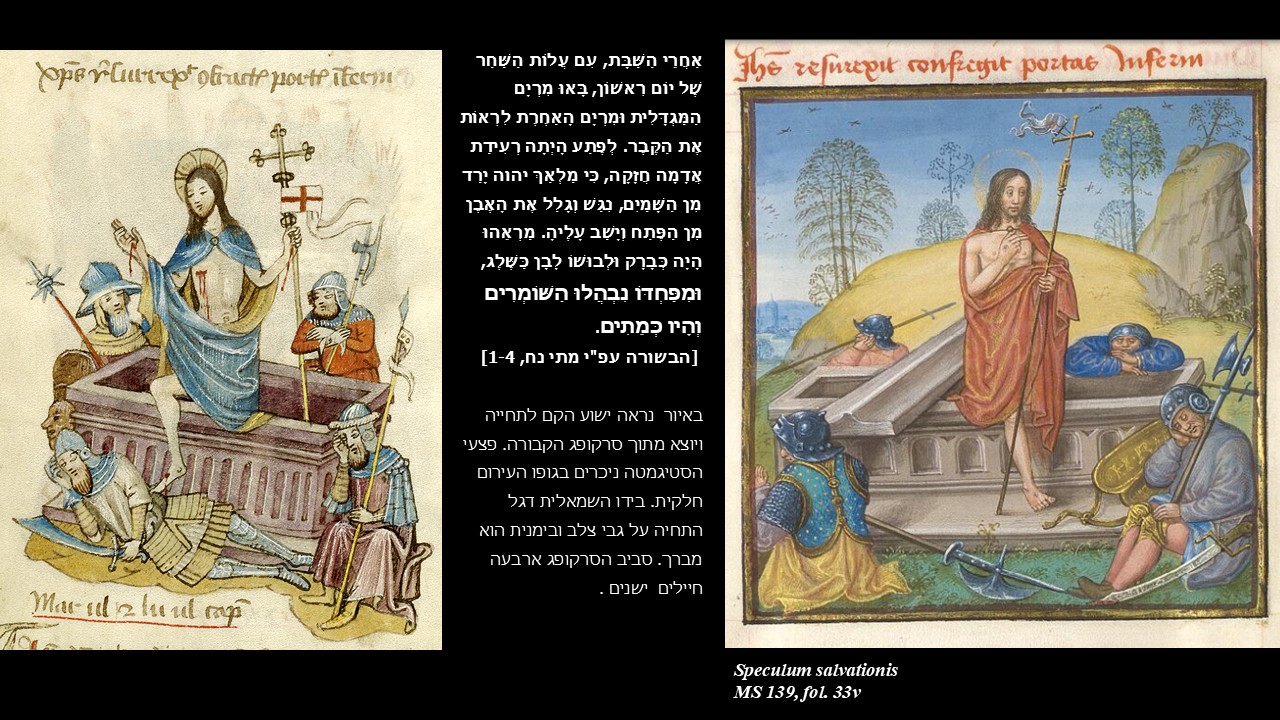 אַחֲרֵי הַשַּׁבָּת, עִם עֲלוֹת הַשַּׁחַר
שֶׁל יוֹם רִאשׁוֹן, בָּאוּ מִרְיָם
הַמַּגְדָּלִית וּמִרְיָם הָאַחֶרֶת לִרְאוֹת
אֶת הַקֶּבֶר. לְפֶתַע הָיְתָה רְעִידַת
אֲדָמָה חֲזָקָה, כִּי מַלְאַךְ יהוה יָרַד
מִן הַשָּׁמַיִם, נִגַּשׁ וְגָלַל אֶת הָאֶבֶן
מִן הַפֶּתַח וְיָשַׁב עָלֶיהָ. מַרְאֵהוּ
הָיָה כְּבָרָק וּלְבוּשׁוֹ לָבָן כַּשֶּׁלֶג,
וּמִפַּחְדּוֹ נִבְהֲלוּ הַשּׁוֹמְרִים
וְהָיוּ כְּמֵתִים.
[הבשורה עפ"י מתי נח, 1-4]
באיור נראה ישוע הקם לתחייה
ויוצא מתוך סרקופג הקבורה. פצעי
הסטיגמטה ניכרים בגופו העירום
חלקית. בידו השמאלית דגל
התחיה על גבי צלב ובימנית הוא
מברך. סביב הסרקופג ארבעה
חיילים ישנים .
Jhēs resurexit confregit portas Inferni
Speculum salvationis
MS 139, fol. 33v